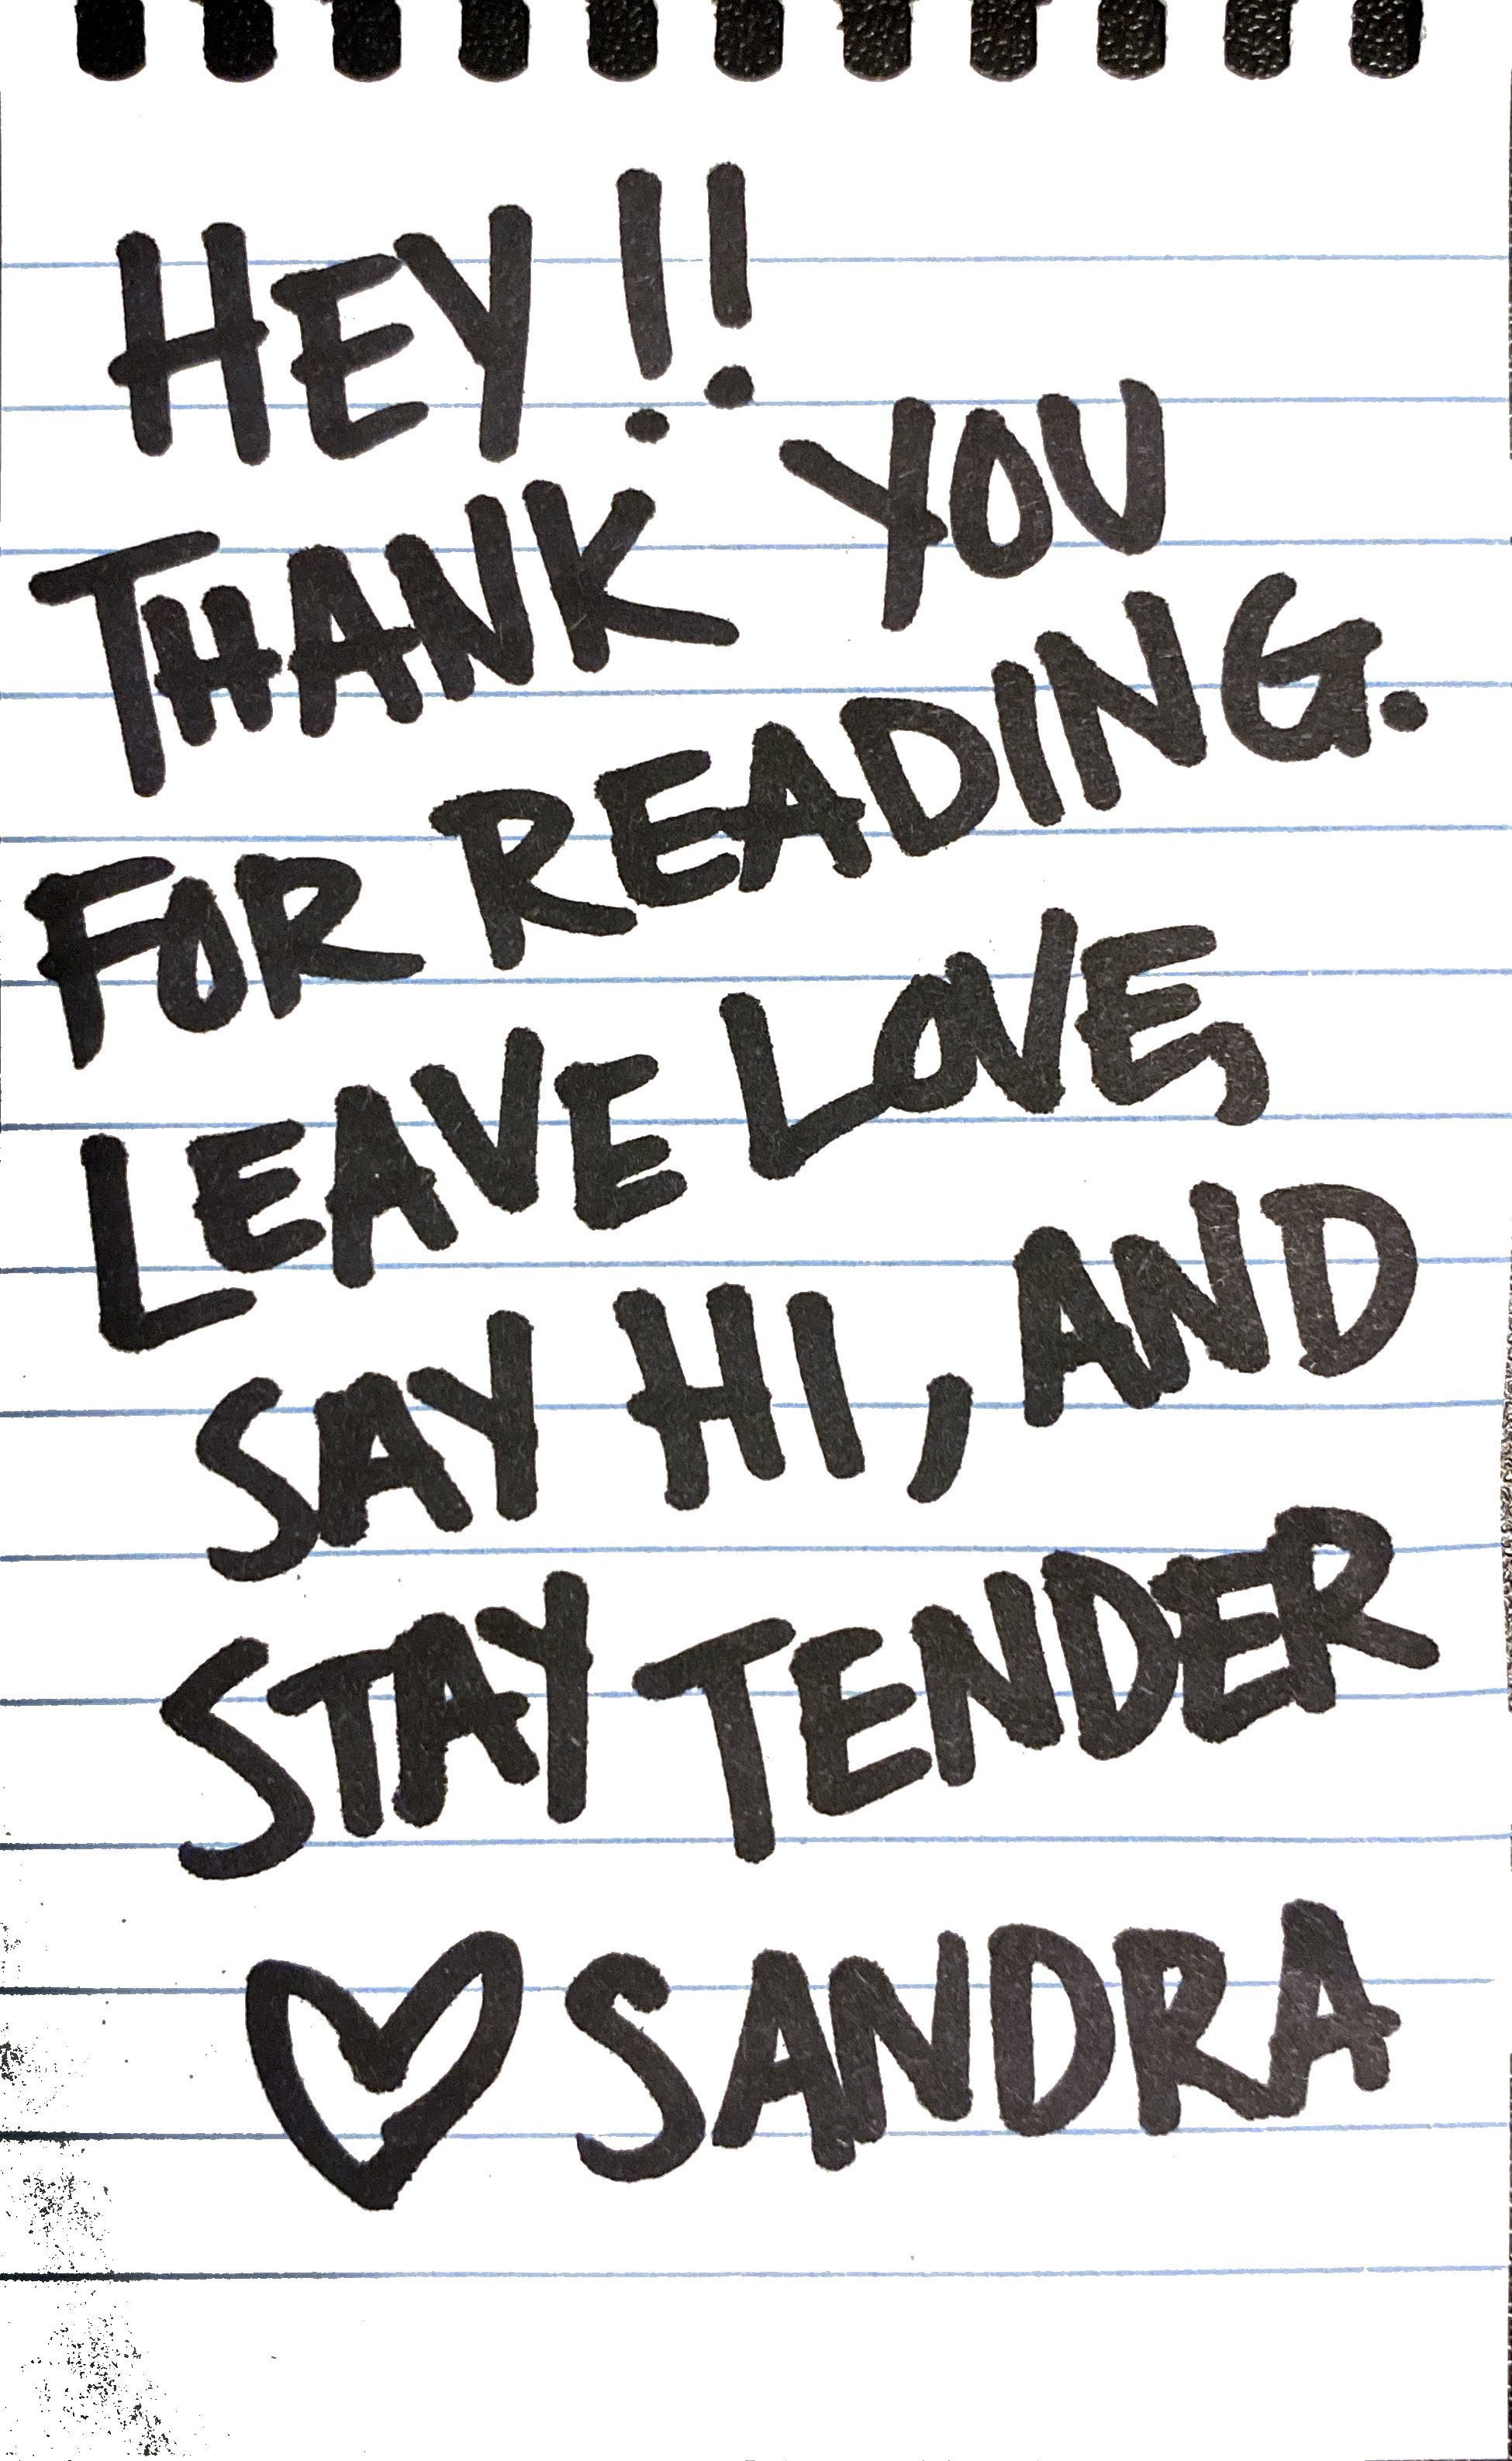 HEY!!
THANK YOU
FOR READING.
LEAVE LOVE,
SAY HI, AND
STAY TENDER
♡ SANDRA